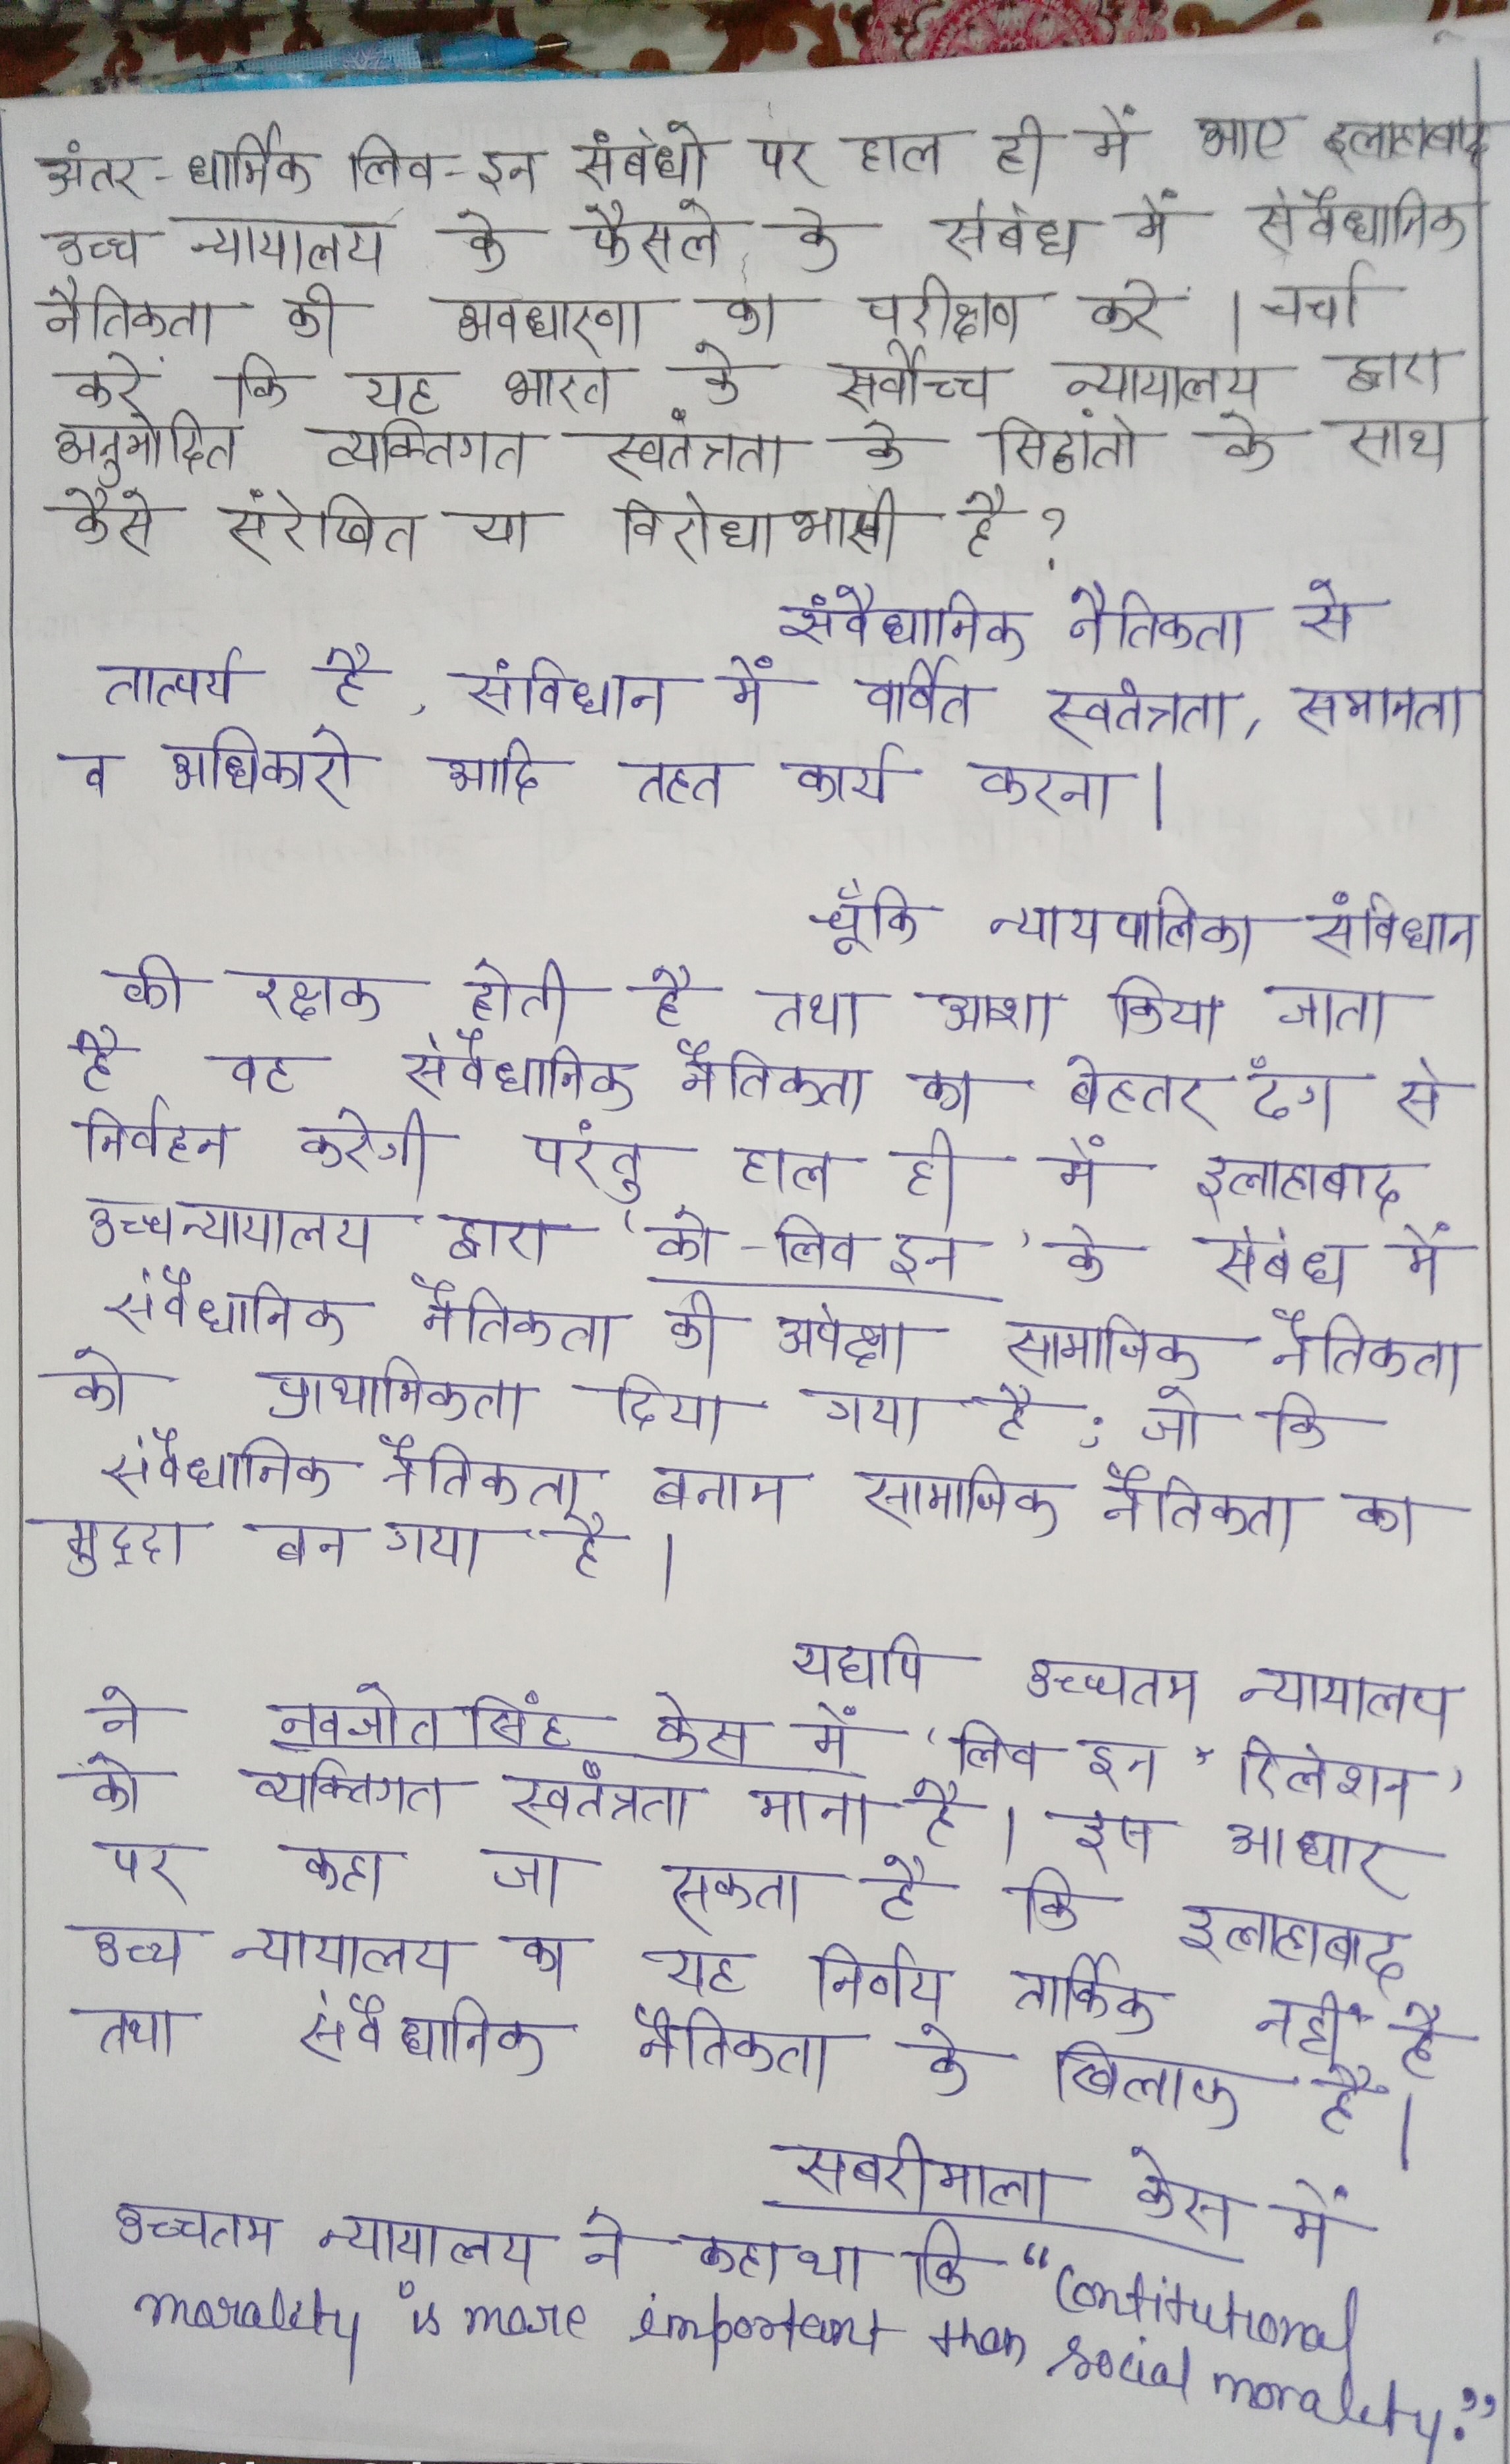 अंतर-धार्मिक लिव-इन संबंधो पर हाल ही में आए इलाहाबाद
उच्च न्यायालय के फैसले के संबंध में संवैधानिक
नैतिकता की अवधारणा का परीक्षण करें । चर्चा
करें कि यह भारत के सर्वोच्च न्यायालय द्वारा
अनुमोदित व्यक्तिगत स्वतंत्रता के सिद्धांतो के साथ
कैसे संरेखित या विरोधाभासी है ?
संवैधानिक नैतिकता से
तात्पर्य है, संविधान में वर्णित स्वतंत्रता, समानता
व अधिकारो आदि तहत कार्य करना।
चूँकि न्यायपालिका संविधान
की रक्षक होती है तथा आशा किया जाता
है वह संवैधानिक नैतिकता का बेहतर ढंग से
निर्वहन करेगी परंतु हाल ही में इलाहाबाद
उच्चन्यायालय द्वारा 'को-लिव इन' के संबंध में
संवैधानिक नैतिकता की अपेक्षा सामाजिक नैतिकता
को प्राथमिकता दिया गया है; जो कि
संवैधानिक नैतिकता बनाम सामाजिक नैतिकता का
मुद्दा बन गया है।
यद्यपि उच्चतम न्यायालय
ने नवजोत सिंह केस में 'लिव इन' रिलेशन'
को व्यक्तिगत स्वतंत्रता माना है। इस आधार
पर कहा जा सकता है कि इलाहाबाद
उच्च न्यायालय का यह निर्णय तार्किक नहीं है
तथा संवैधानिक नैतिकता के खिलाफ है।
सबरीमाला केस में
उच्चतम न्यायालय ने कहा था कि "Contitutional
morality is more important than social morality."